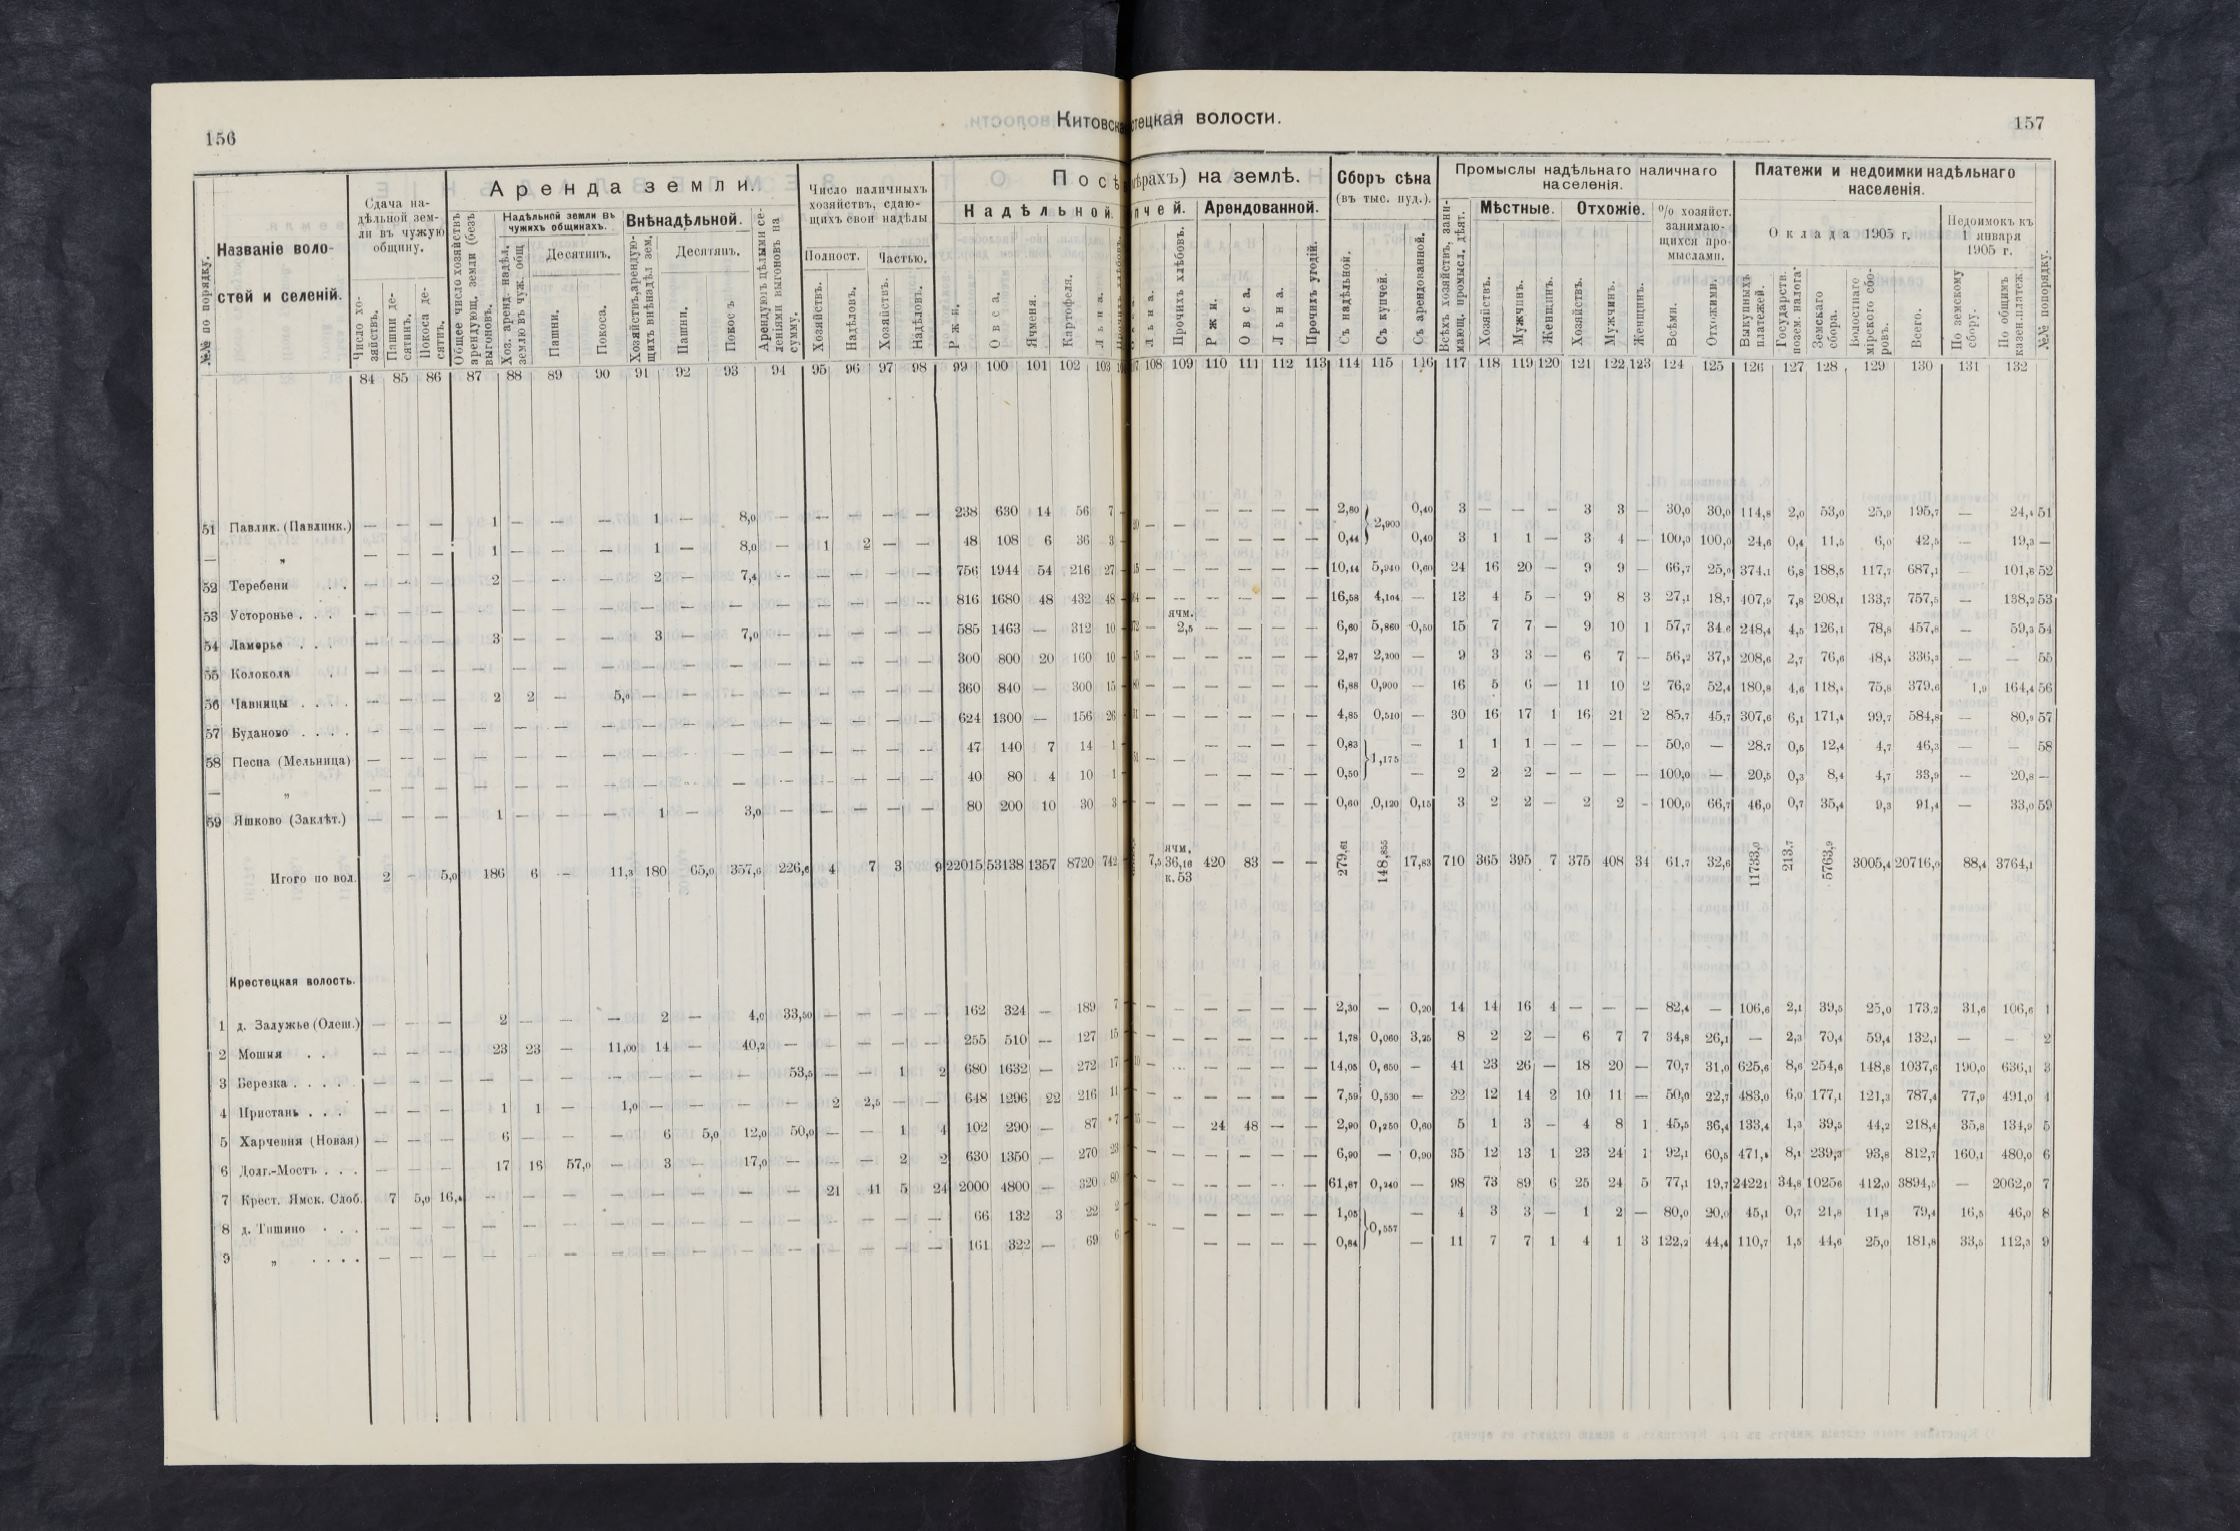 156
Китовск
тецкая волости.
157
№№ по порядку.
Названіе воло-
стей и селеній.
Сдача на-
дѣльной зем-
ли въ чужую
общину.
Число хо-
зяйствъ.
Пашни де-
сятинъ.
Покоса де-
сятинъ.
Аренда земли.
Общее число хозяйствъ
арендующ. земли (безъ
выгоновъ.
Надѣльной земли въ
чужихъ общинахъ.
Хоз. аренд. надѣл.
землю въ чуж. общ
Десятинъ.
Пашни.
Покоса.
Внѣнадѣльной.
Хозяйствъ, арендую-
щихъ внѣнадѣл зем.
Десятинъ.
Пашни.
Покос ъ
Арендуютъ цѣлыми се-
леніями выгоновъ на
сумму.
Число наличныхъ
хозяйствъ, сдаю-
щихъ свои надѣлы
Полност. Частью.
Хозяйствъ.
Надѣловъ.
Хозяйствъ.
Надѣловъ.
Посѣ
Надѣльной.
Ржи.
Овса.
Ячменя.
Картофеля.
Льна.
мѣрахъ) на землѣ.
пчей. Арендованной.
Льна.
Прочихъ хлѣбовъ.
Ржи.
Овса.
Льна.
Прочихъ угодій.
Сборъ сѣна
(въ тыс. пуд.).
Съ надѣльной.
Съ купчей.
Съ арендованной.
Промыслы надѣльнаго наличнаго
населенія.
Всѣхъ хозяйствъ, зани-
мающ. промысл. дѣят.
Мѣстные. Отхожіе.
Хозяйствъ.
Мужчинъ.
Женщинъ.
Хозяйствъ.
Мужчинъ.
Женщинъ.
% хозяйст.
занимаю-
щихся про-
мыслами.
Всѣми.
Отхожими.
Платежи и недоимки надѣльнаго
населенія.
Оклада 1905 г.
Выкупныхъ
платежей.
Государств.
позем. налога
Земскаго
сбора.
Волостнаго
мірского сбо-
ровъ.
Всего.
Недоимокъ къ
1 января
1905 г.
По земскому
сбору.
По общимъ
казен. платеж.
№№ попорядку.
84 85 86 87 88 89 90 91 92 93 94 95 96 97 98 99 100 101 102 103
108 109 110 111 112 113 114 115 116 117 118 119 120 121 122 123 124 125 126 127 128 129 130 131 132
51 Павлик. (Павлинк.) — — — 1 — — — 1 — 8,0 — — — — — 238 630 14 56 7
— — — — — — 2,80 2,900 0,40 3 — — — 3 3 — 30,0 30,0 114,8 2,0 53,0 25,9 195,7 — 24,4 51
— „ — — — 1 — — — 1 — 8,0 — 1 2 — — 48 108 6 36 3
— — — — 0,44 0,40 3 1 1 — 3 4 — 100,0 100,0 24,6 0,4 11,5 6,0 42,5 — 19,3 —
52 Теребени . . — — — 2 — — — 2 — 7,4 — — — — — 756 1944 54 216 27
— — — — — — 10,44 5,940 0,60 24 16 20 — 9 9 — 66,7 25,0 374,1 6,8 188,5 117,7 687,1 — 101,6 52
53 Усторонье . . . — — — — — — — — — — — — — — — 816 1680 48 432 48
— — — — — — 16,58 4,104 — 13 4 5 — 9 8 3 27,1 18,7 407,9 7,8 208,1 133,7 757,5 — 138,2 53
54 Ламорье . . . — — — 3 — — — 3 — 7,0 — — — — — 585 1463 — 312 10
— ячм. 2,5 — — — — 6,60 5,860 0,50 15 7 7 — 9 10 1 57,7 34,6 248,4 4,5 126,1 78,8 457,8 — 59,3 54
55 Колокола . — — — — — — — — — — — — — — — 300 800 20 160 10
— — — — — — 2,87 2,200 — 9 3 3 — 6 7 — 56,2 37,5 208,6 2,7 76,6 48,4 336,3 — — 55
56 Чавницы . . . . — — — 2 2 — 5,0 — — — — — — — — 360 840 — 300 15
— — — — — — 6,88 0,900 — 16 5 6 — 11 10 2 76,2 52,4 180,8 4,6 118,4 75,8 379,6 1,9 164,4 56
57 Буданово . . . . — — — — — — — — — — — — — — — 624 1300 — 156 26
— — — — — — 4,85 0,510 — 30 16 17 1 16 21 2 85,7 45,7 307,6 6,1 171,4 99,7 584,8 — 80,9 57
58 Песна (Мельница) — — — — — — — — — — — — — — — 47 140 7 14 1
— — — — — — 0,83 1,175 — 1 1 1 — — — — 50,0 — 28,7 0,5 12,4 4,7 46,3 — — 58
— „ — — — — — — — — — — — — — — — 40 80 4 10 1
— — — — 0,50 — 2 2 2 — — — — 100,0 — 20,5 0,3 8,4 4,7 33,9 — 20,8 —
59 Яшково (Заклѣт.) — — — 1 — — — 1 — 3,0 — — — — — 80 200 10 30 3
— — — — — — 0,60 0,120 0,15 3 2 2 — 2 2 - 100,0 66,7 46,0 0,7 35,4 9,3 91,4 — 33,0 59
Итого по вол. 2 - 5,0 186 6 — 11,3 180 65,0 357,6 226,6 4 7 3 9 22015 53138 1357 8720 742
7,5 ячм. 36,16 к. 53 420 83 — — 279,61 148,855 17,83 710 365 395 7 375 408 34 61,7 32,6 11733,0 213,7 5763,9 3005,4 20716,0 88,4 3764,1
Крестецкая волость.
1 д. Залужье (Олеш.) — — — 2 — — — 2 — 4,0 33,50 — — — — 162 324 — 189 7
— — — — — — 2,30 — 0,20 14 14 16 4 — — — 82,4 — 106,6 2,1 39,5 25,0 173,2 31,6 106,6 1
2 Мошня . . — — — 23 23 — 11,00 14 — 40,2 — — — — — 255 510 — 127 15
— — — — — — 1,78 0,060 3,25 8 2 2 — 6 7 7 34,8 26,1 — 2,3 70,4 59,4 132,1 — — 2
3 Березка . . . . . — — — — — — — — — — 53,5 — — 1 2 680 1632 — 272 17
— — — — — — 14,05 0,650 — 41 23 26 — 18 20 — 70,7 31,0 625,6 8,6 254,6 148,8 1037,6 190,0 636,1 3
4 Пристань . . . — — — 1 1 — 1,0 — — — — 2 2,5 — — 648 1296 22 216 11
— — — — — — 7,59 0,530 — 22 12 14 2 10 11 — 50,0 22,7 483,0 6,0 177,1 121,3 787,4 77,9 491,0 4
5 Харчевня (Новая) — — — 6 — — — 6 5,0 12,0 50,0 — — 1 4 102 290 — 87 7
— — 24 48 — — 2,90 0,250 0,60 5 1 3 — 4 8 1 45,5 36,4 133,4 1,3 39,5 44,2 218,4 35,8 134,9 5
6 Долг.-Мостъ . . . — — — 17 16 57,0 — 3 — 17,0 — — — 2 2 630 1350 — 270 23
— — — — — — 6,90 — 0,90 35 12 13 1 23 24 1 92,1 60,5 471,8 8,1 239,3 93,8 812,7 160,1 480,0 6
7 Крест. Ямск. Слоб. 7 5,0 16,4 — — — — — — — — 21 41 5 24 2000 4800 — 320 80
— — — — — — 61,87 0,240 — 98 73 89 6 25 24 5 77,1 19,7 24221 34,8 10256 412,0 3894,5 — 2062,0 7
8 д. Тишино . . . — — — — — — — — — — — — — — — 66 132 3 22 2
— — — — — — 1,05 0,557 — 4 3 3 — 1 2 — 80,0 20,0 45,1 0,7 21,8 11,8 79,4 16,5 46,0 8
9 „ . . . . — — — — — — — — — — — — — — — 161 322 — 69 6
— — — — 0,84 — 11 7 7 1 4 1 3 122,2 44,4 110,7 1,5 44,6 25,0 181,8 33,5 112,3 9